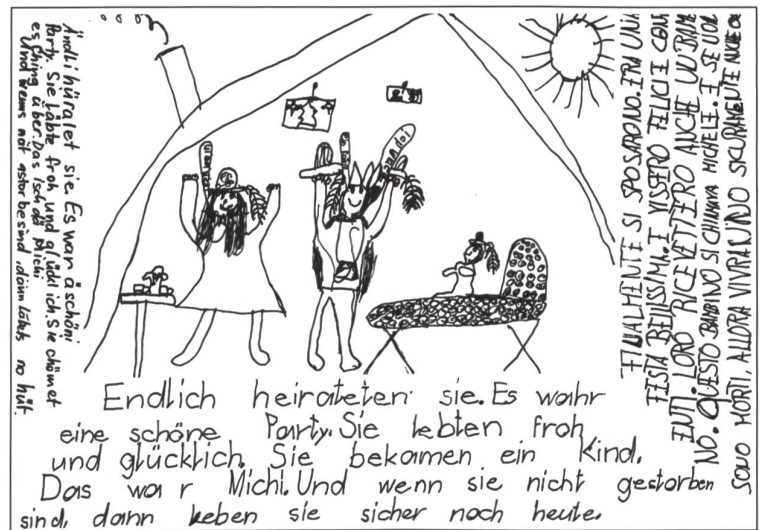 Ändli hüratet sie. Es war ä schöni
Party. Sie läbte froh und glückl ich. Sie chömet
es Ching über. Das Isch dä Michi.
Und wenns nöt gstorbe sind, dänn läbets no hüt.
Endlich heirateten sie. Es wahr
eine schöne Party. Sie lebten froh
und glücklich. Sie bekamen ein Kind.
Das war Michi. Und wenn sie nicht gestorben
sind, dann leben sie sicher noch heute.
FINALMENTE SI SPOSARONO. ERA UNA
FESTA BELLISSIMA. E VISSERO FELICI E CONT
ENTI. LORO RICEVETTERO ANCHE UN BAMBI
NO. QUESTO BAMBINO SI CHIMAVA MICHELE. E SE NON
SONO MORTI, ALLORA VIVRANNO SICURAMENTE